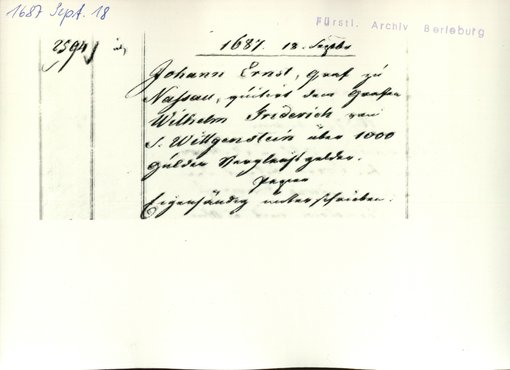 1687 Sept. 18
Fürstl. Archiv Berleburg
2594
1687. 18. Septbr
Johann Ernst, Graf zu
Nassau, quitirt dem Grafen
Wilhelm Friderich von
S. Wittgenstein über 1000
Gulden Vergleichsgelder.
Papier
Eigenhändig unterschrieben.